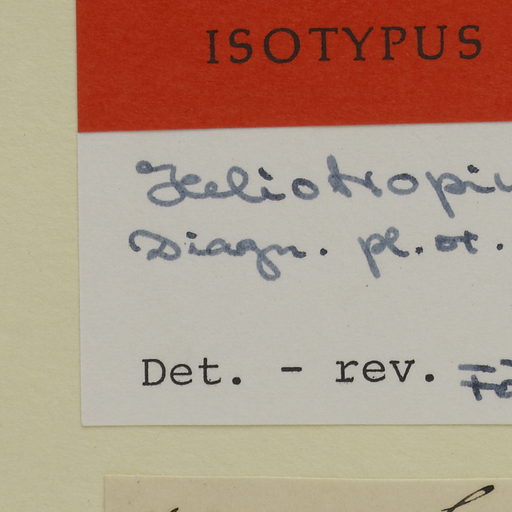 ISOTYPUS
Heliotropiu
Diagn. pl. or.
Det. - rev. Fö